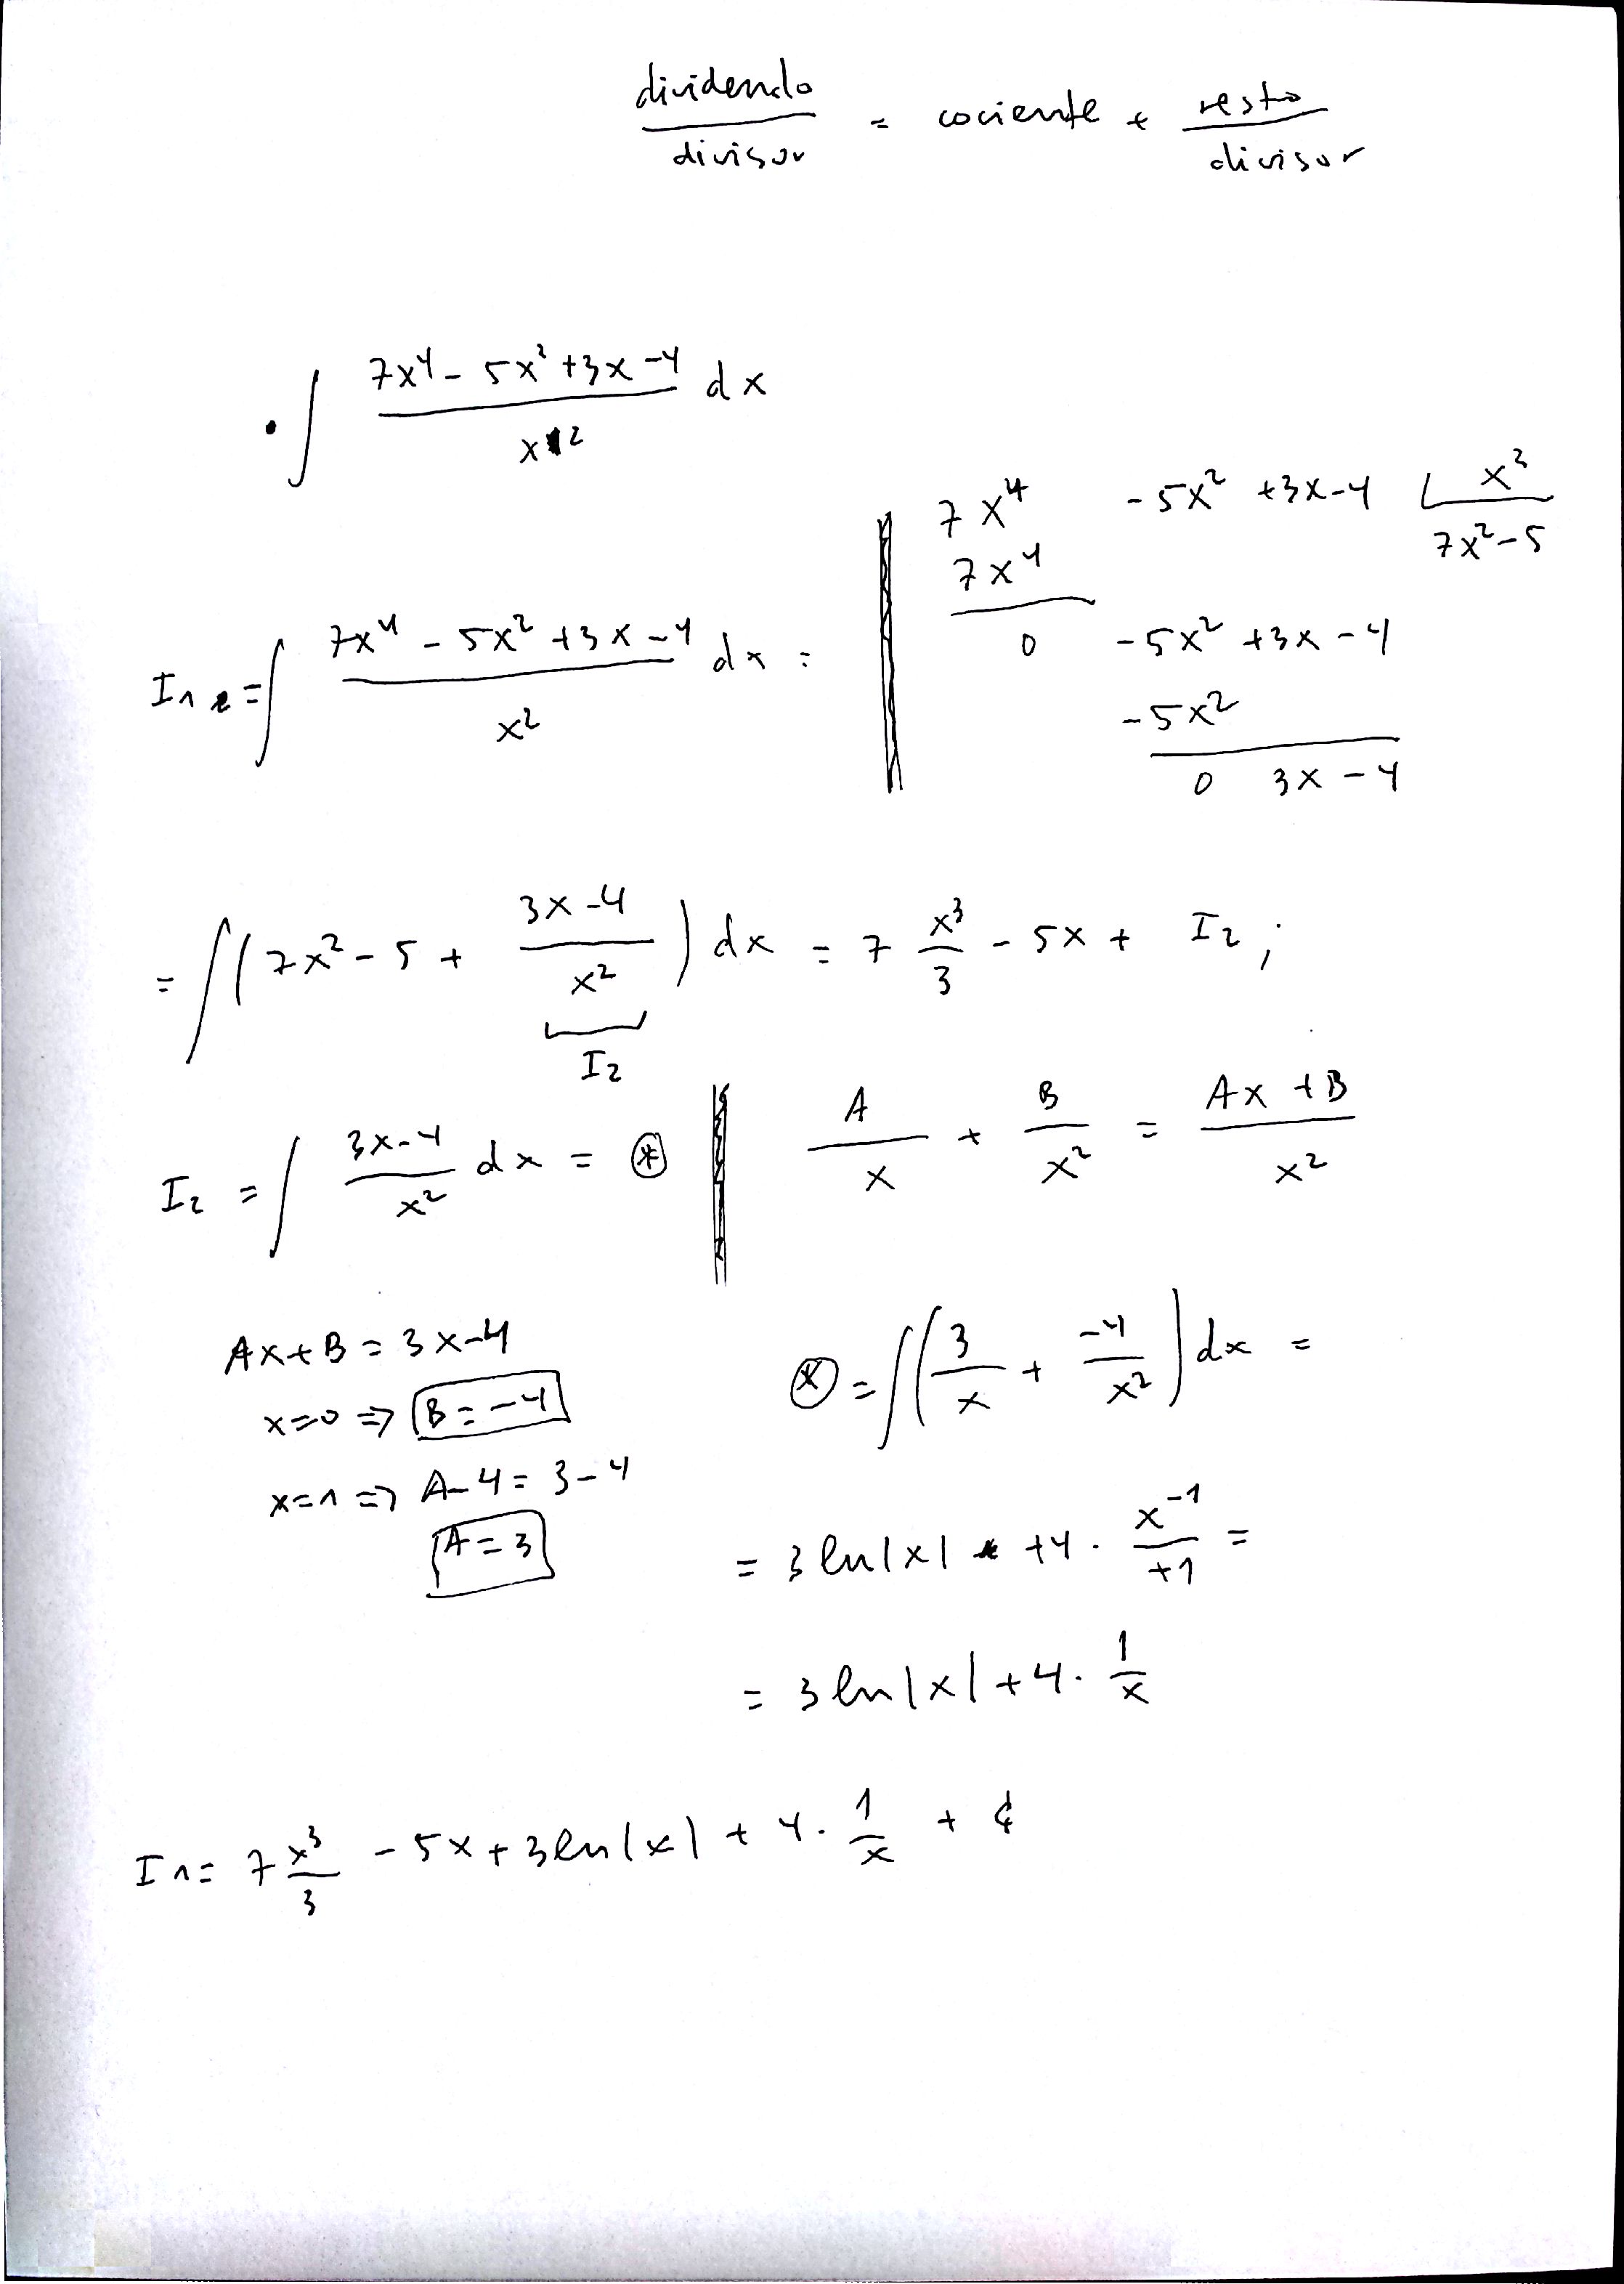 dividendo / divisor = cociente + resto / divisor
• ∫ (7x⁴ - 5x² + 3x - 4) / x² dx
7x⁴ -5x² +3x-4 ∟ x²
7x⁴ 7x²-5
0 -5x² +3x -4
-5x²
0 3x -4
I1 = ∫ (7x⁴ - 5x² + 3x - 4) / x² dx =
= ∫ (7x² - 5 + (3x-4) / x²) dx = 7 x³/3 - 5x + I2 ;
I2
I2 = ∫ (3x-4) / x² dx = ⊛
A/x + B/x² = (Ax + B) / x²
Ax+B = 3x-4
x=0 ⇒ B = -4
x=1 ⇒ A-4 = 3-4
A = 3
⊛ = ∫ (3/x + -4/x²) dx =
= 3 ln|x| +4 · x⁻¹/+1 =
= 3 ln|x| + 4 · 1/x
I1 = 7 x³/3 - 5x + 3 ln|x| + 4 · 1/x + ¢